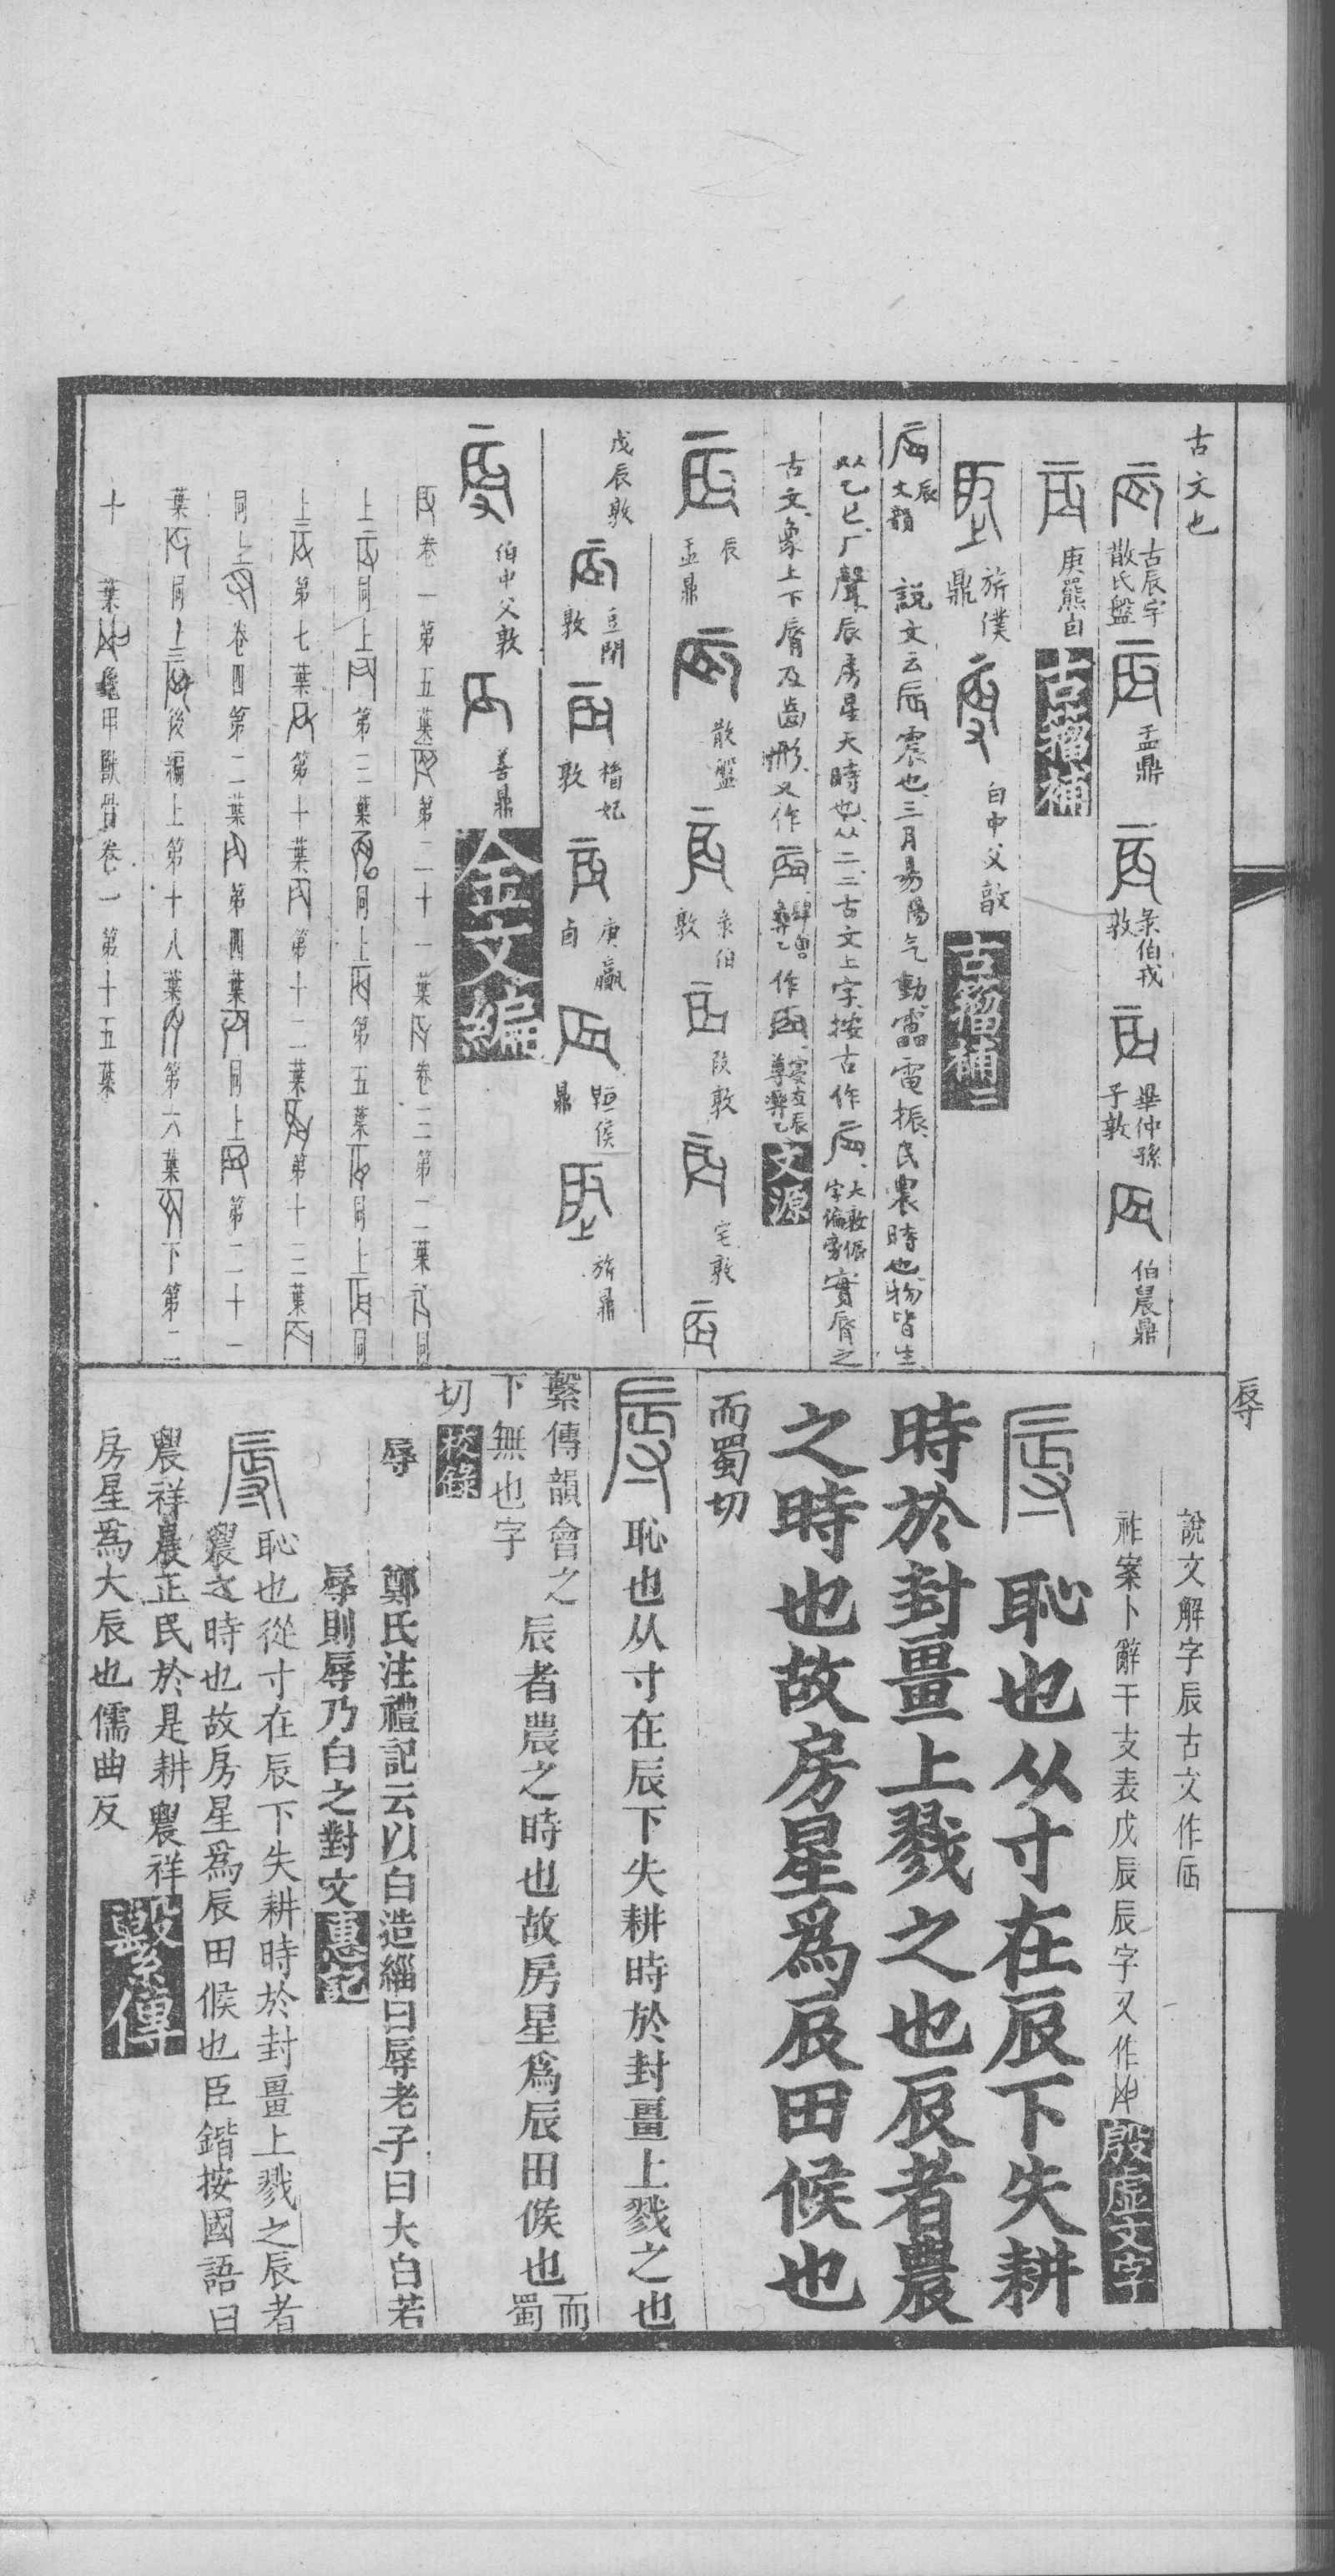 古文也
古辰字
散氏盤
盂鼎
彔伯戎
敦
畢仲孫
子敦
伯晨鼎
庚羆卣
古籀補
旂僕
鼎
白中父敦
古籀補二
辰
文韻
說文云辰震也三月昜陽气動靁電振民農時也物皆生
从乙匕厂聲辰房星天時也从二二古文上字按古作
字偏旁
實脣之
古文象上下脣及齒形又作
作
文源
辰
盂鼎
散盤
彔伯
敦
段敦
宅敦
戊辰敦
豆閉
敦
楷妃
敦
庚嬴
卣
鼎
旂鼎
伯中父敦
善鼎
金文編
卷一第五葉
第二十一葉
卷二第二葉
同
上二
同上
第二葉
同上
第五葉
同上
同
上三
第七葉
第十葉
第十二葉
第十三葉
同上
卷四第二葉
第四葉
同上
第二十一
葉
同上
後編上第十八葉
第六葉
下第二
十葉
龜甲獸骨卷一第十五葉
辱
說文解字辰古文作𠨷
祚案卜辭干支表戊辰辰字又作
殷虛文字
恥也从寸在辰下失耕
時於封畺上戮之也辰者農
之時也故房星爲辰田候也
而蜀切
恥也从寸在辰下失耕時於封畺上戮之也
繫傳韻會之
下無也字
辰者農之時也故房星爲辰田候也
而蜀
切
校錄
辱
鄭氏注禮記云以白造緇曰辱老子曰大白若
辱則辱乃白之對文
惠記
恥也從寸在辰下失耕時於封畺上戮之辰者
農之時也故房星爲辰田候也臣鍇按國語曰
農祥晨正民於是耕農祥
房星爲大辰也儒曲反
繫傳